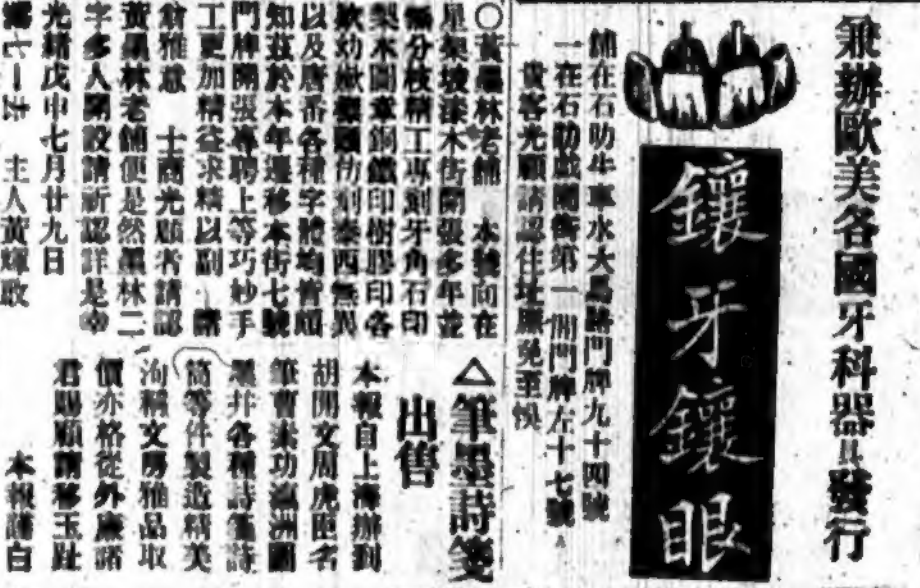 兼辦歐美各國牙科器具發行
鑲牙鑲眼
舖在石叻牛車水大馬路門牌九十四號
一在石叻戲園街第一間門牌左十七號
貴客光顧請認住址庶免至悞
○黃墨林老舖 本號向在
星架坡漆木街開張多年並
無分枝精工專刻牙角石印
梨木圖章銅鐵印樹膠印各
款
以及唐番各種字體均皆
知茲於本年遷移本街七號
門牌開張專聘上等巧妙手
工更加精益求精以副 諸
翁雅意 士商光顧者請認
黃墨林老舖便是然墨林二
字多人開設請祈認詳是幸
光緒戊申七月廿九日
主人黃輝啟
△筆墨詩箋
出售
本報自上海辦到
胡開文周虎臣名
筆曹素功瀛洲圖
墨并各種詩箋詩
筒等件製造精美
洵稱文房雅品取
價亦格從外廉諸
君賜顧請移玉趾
本報謹白